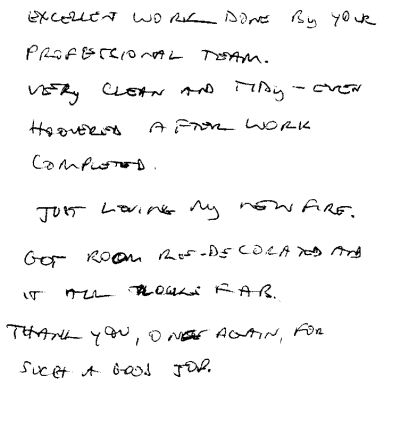 EXCELLENT WORK DONE By YOUR
PROFESSIONAL TEAM.
VERy CLEAN AND TIDy - EVEN
HOOVERED AFTER WORK
COMPLETED.
JUST LOVING My NEW FIRE.
GOT ROOM RE-DECORATED AND
IT ALL LOOKS FAB.
THANK YOU, ONCE AGAIN, FOR
SUCH A GOOD JOB.